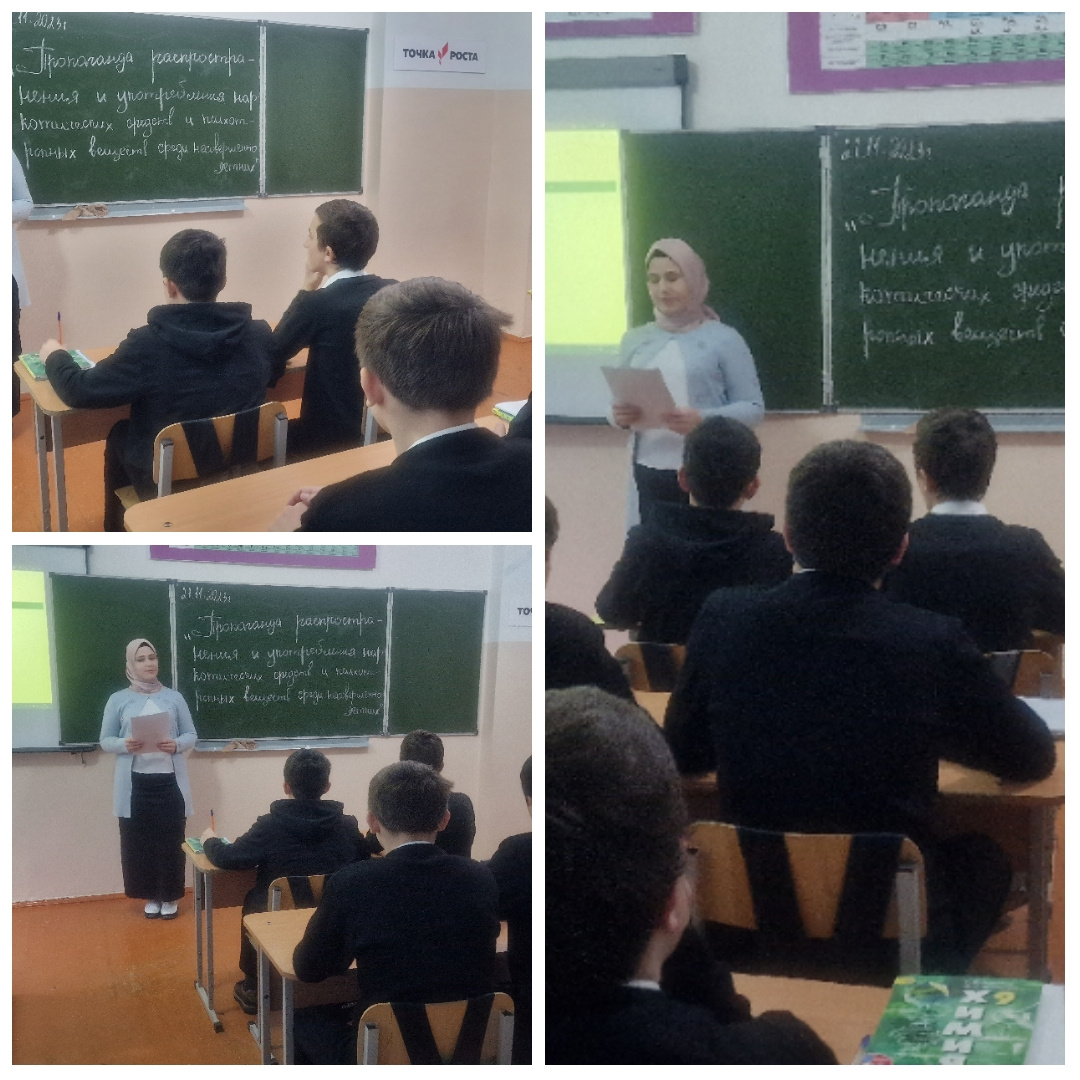 11.2023г
"Пропаганда распростра-
нения и употребления нар
котических средств и психот-
ропных веществ среди несовершенно
летних"
ТОЧКА РОСТА
21.11.2023г
"Пропаганда р
нения и упот
котических средс
ропных веществ
21.11.2023г
"Пропаганда распростра-
нения и употребления нар
котических средств и психот-
ропных веществ среди несовершенно
летних"
ТО
ХИМИЯ 9